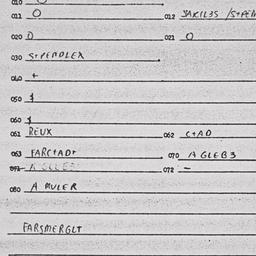 010 O
011 O 012 JAKIL3S /S+PEN
020 D 021 O
030 S+PENDLEX
040 +
050 $
060 $
061 REUX 062 C+AD
063 FARC+AD+ 070 A GLEB3
071 072 –
080 A MULER
FARSMERGLT